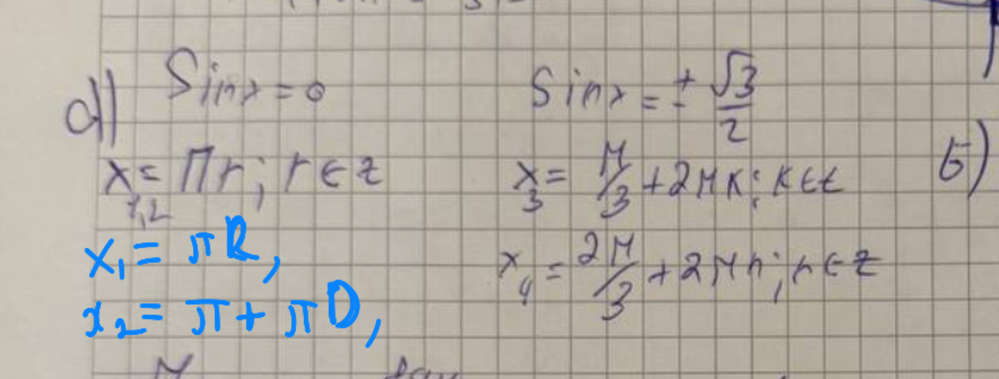 а) Sinx = 0
x₁,₂ = πr; r ∈ z
x₁ = πR,
x₂ = π + πD,
Sinx = ± √3/2
x₃ = π/3 + 2πк; к ∈ z
x₄ = 2π/3 + 2πn; n ∈ z
б)